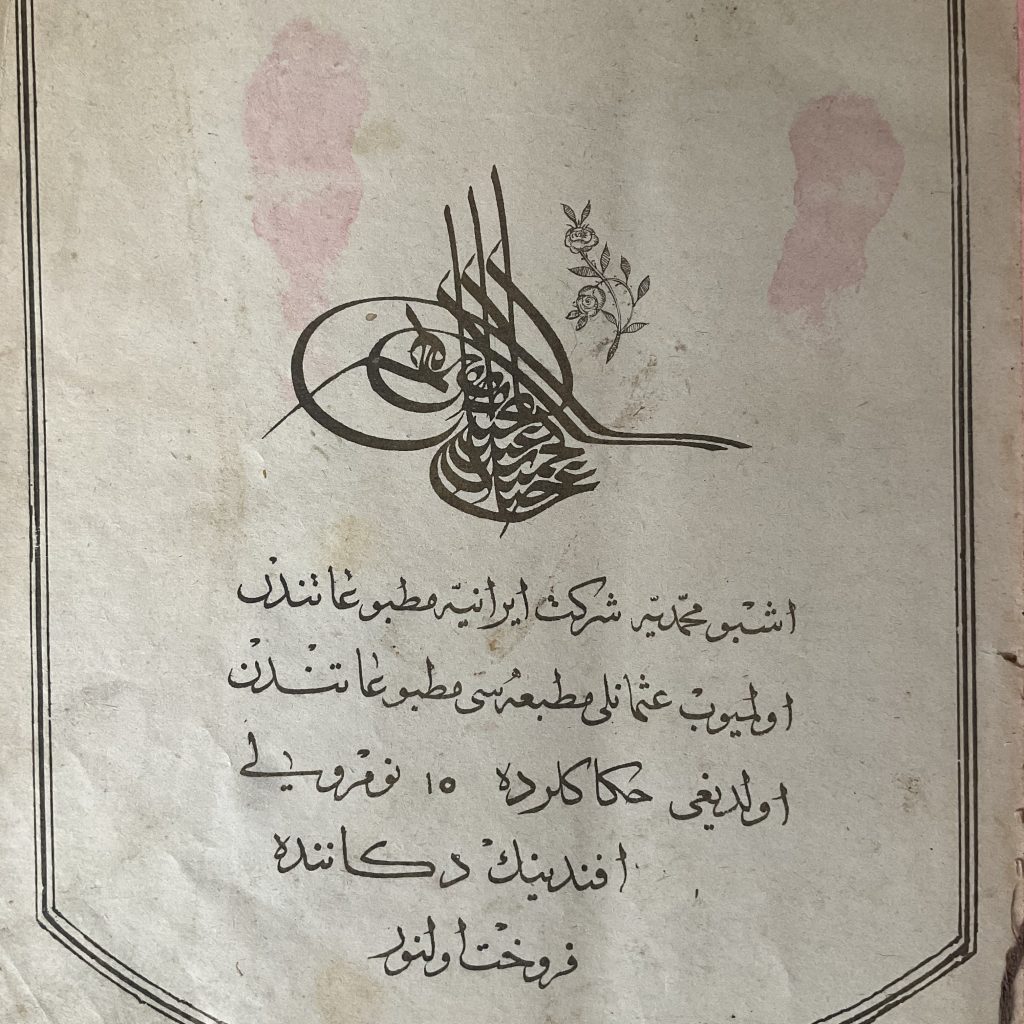 اشبو محمّديّه شركت ايرانيّه مطبوعاتندن
اولميوب عثمانلى مطبعه‌سى مطبوعاتندن
اولديغى حكاكلرده ١٥ نومرولى
افندينك دكاننده
فروخت اولنور